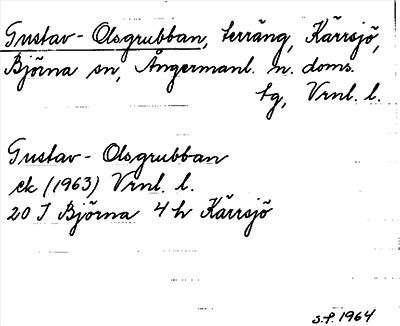 Gustav-Olsgrubban, terräng, Kärrsjö,
Björna sn, Ångermanl. n. doms.
tg, Vrnl. l.
Gustav-Olsgrubban
ek (1963) Vrnl. l.
20 J Björna 4h Kärrsjö
s.f. 1964